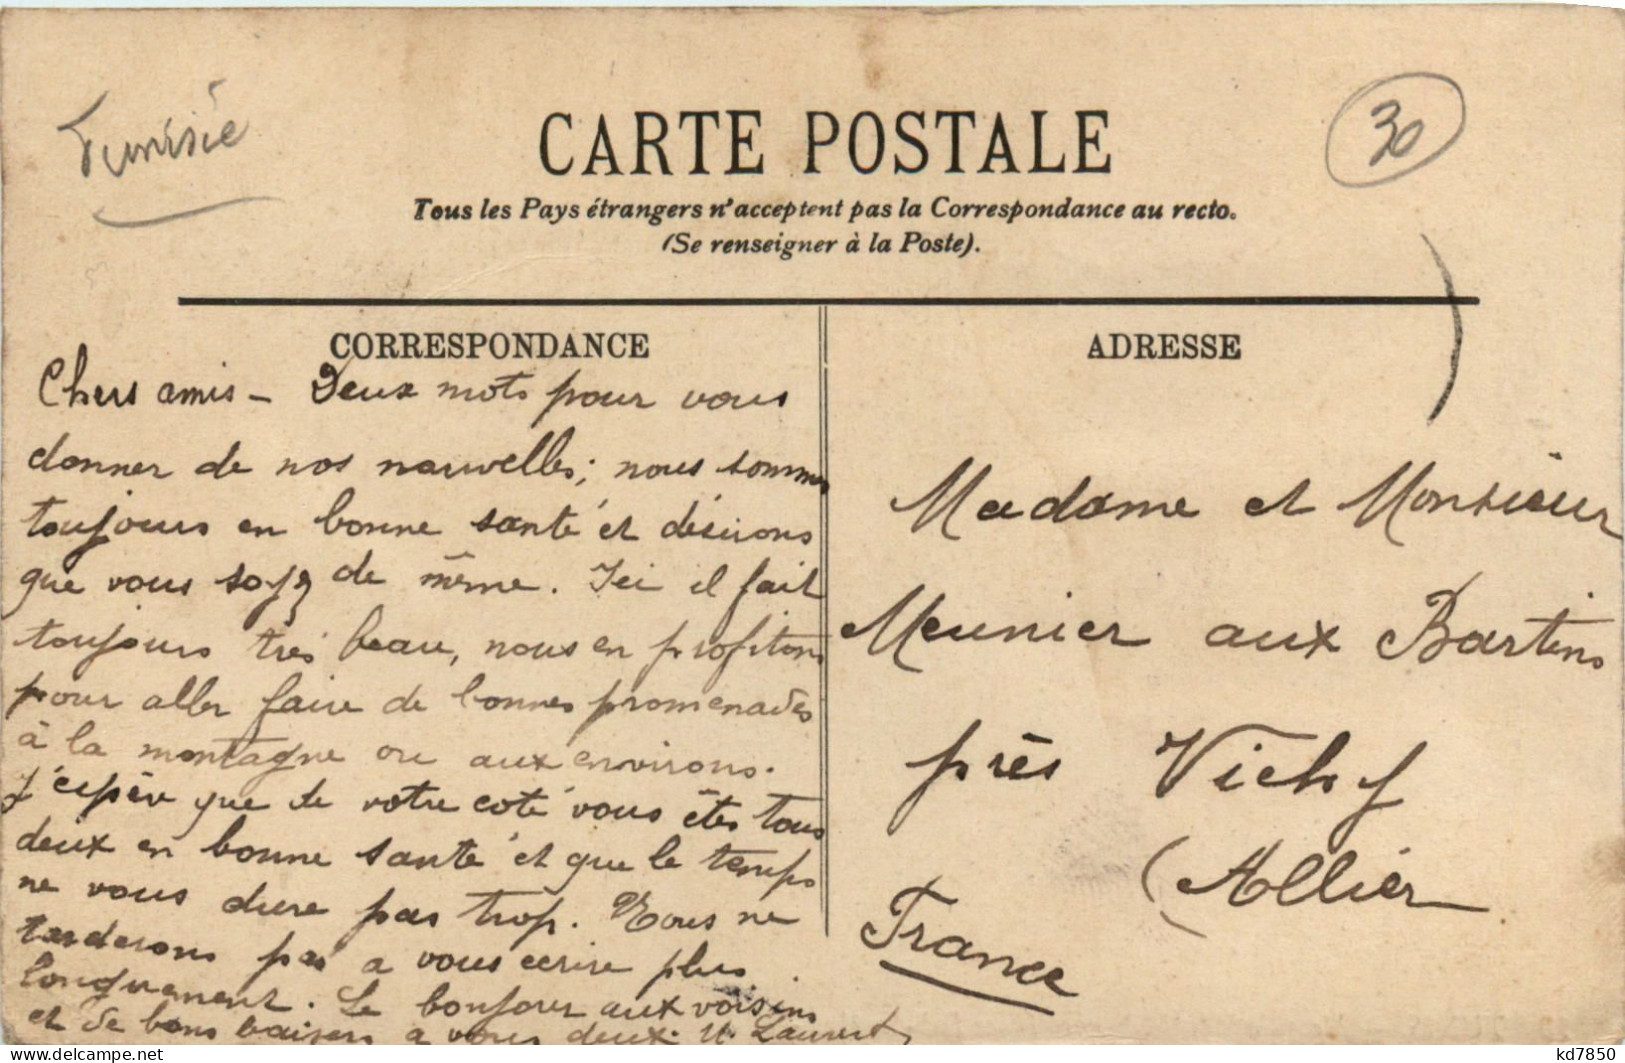 Tunisie
30
CARTE POSTALE
Tous les Pays étrangers n'acceptent pas la Correspondance au recto.
(Se renseigner à la Poste).
CORRESPONDANCE
Chers amis - Deux mots pour vous
donner de nos nouvelles; nous sommes
toujours en bonne santé et désirons
que vous soyez de même. Ici il fait
toujours très beau, nous en profitons
pour aller faire de bonnes promenades
à la montagne ou aux environs.
J'espère que de votre coté vous êtes tous
deux en bonne santé et que le temps
ne vous dure pas trop. Nous ne
tarderons pas a vous ecrire plus
longuement. Le bonjour aux voisins
et de bons baisers a vous deux. Laurent
ADRESSE
Madame et Monsieur
Meunier aux Bartins
près Vichy
(Allier
France
kd7850